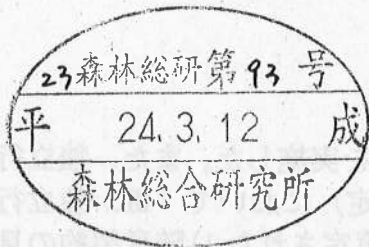 23森林総研第93号
平 24.3.12 成
森林総合研究所